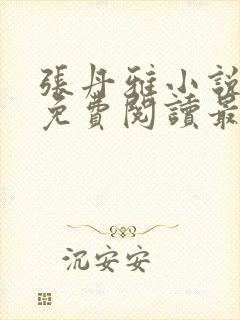 張丹雅小說
免費閱讀最
沉安安